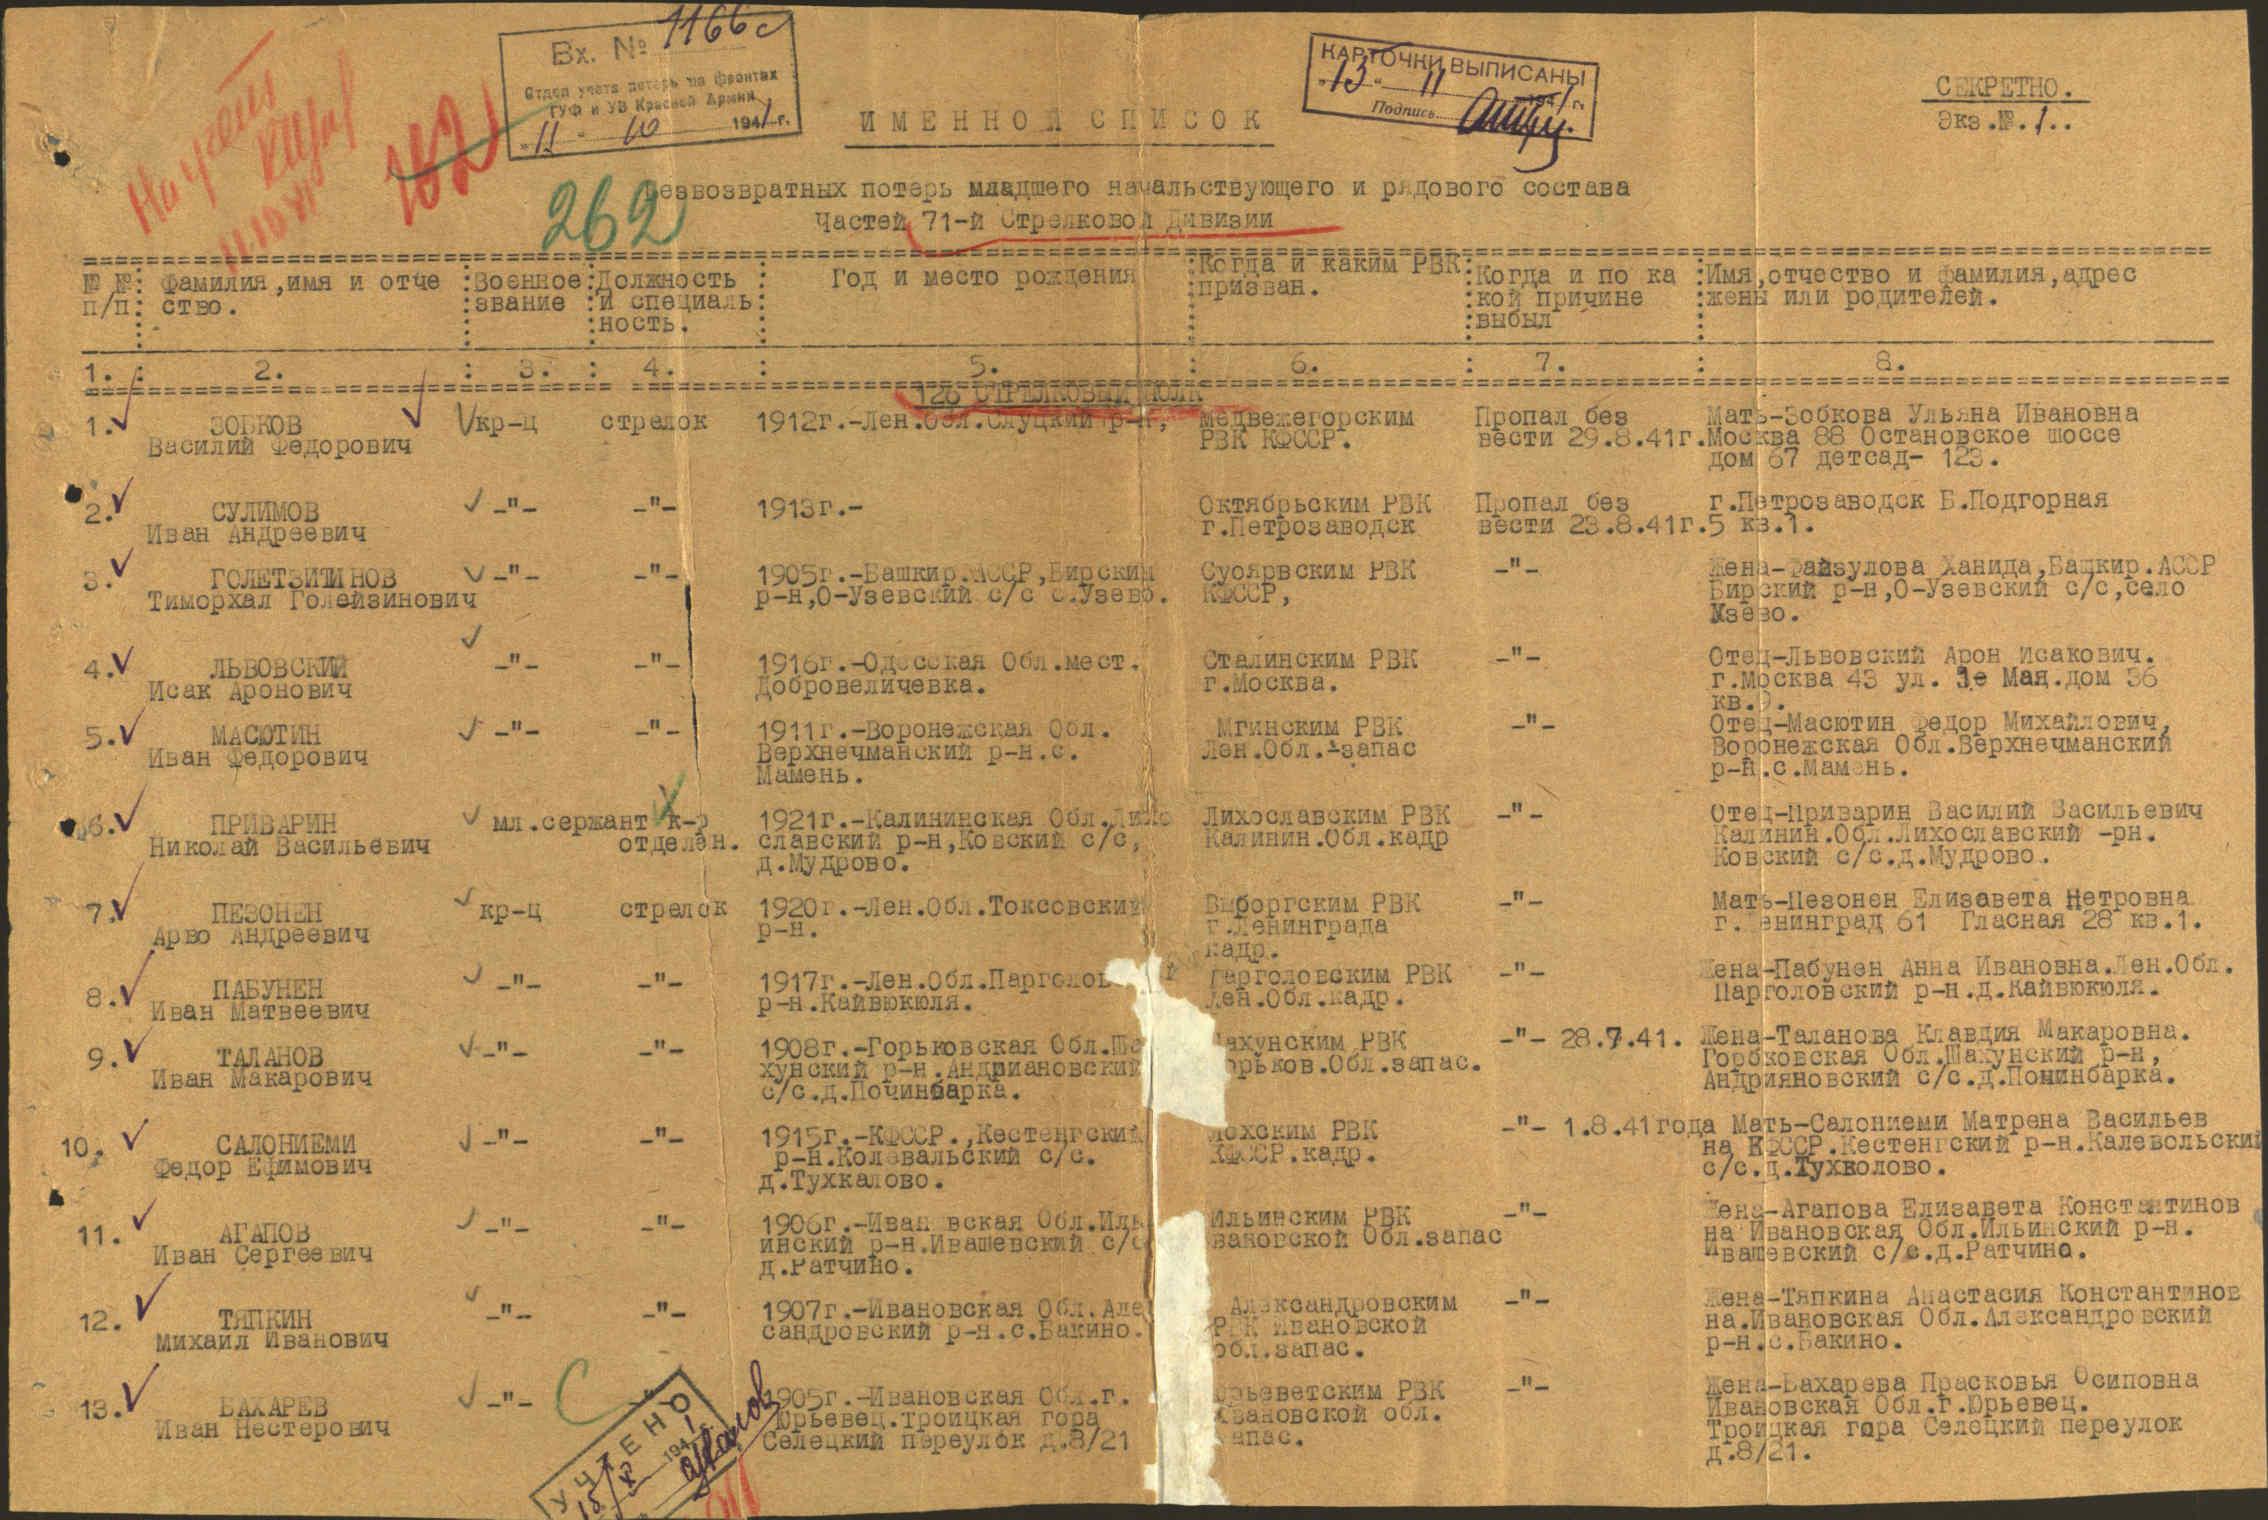 Вх. № 1166с
Отдел учета потерь на фронтах
ГУФ и УВ Красной Армии
"11" 10 1941 г.
КАРТОЧКИ ВЫПИСАНЫ
"13" 11 1941 г.
Подпись
СЕКРЕТНО.
Экз.№.1..
На учет
11.10.41
162
262
ИМЕННОЙ СПИСОК
безвозвратных потерь младшего начальствующего и рядового состава
Частей 71-й Стрелковой Дивизии
№ №: Фамилия,имя и отче :Военное:Должность : Год и место рождения :Когда и каким РВК:Когда и по ка :Имя,отчество и фамилия,адрес
п/п: ство. :звание :и специаль: :призван. :кой причине :жены или родителей.
:ность. :выбыл
1. : 2. : 3. : 4. : 5. : 6. : 7. : 8.
126 СТРЕЛКОВЫЙ ПОЛК
1. ЗОБКОВ кр-ц стрелок 1912г.-Лен.Обл.Слуцкий р-н, Медвежегорским Пропал без Мать-Зобкова Ульяна Ивановна
Василий Федорович РВК КФССР. вести 29.8.41г.Москва 88 Остановское шоссе
дом 67 детсад- 123.
2. СУЛИМОВ -"- -"- 1913г.- Октябрьским РВК Пропал без г.Петрозаводск Б.Подгорная
Иван Андреевич г.Петрозаводск вести 23.8.41г.5 кв.1.
3. ГОЛЕТЗИТИНОВ -"- -"- 1905г.-Башкир.АССР,Бирский Суоярвским РВК -"- Жена-Файзулова Ханида,Башкир.АССР
Тиморхал Голейзинович р-н,О-Узевский с/с с.Узево. КФССР, Бирский р-н,О-Узевский с/с,село
Узево.
4. ЛЬВОВСКИЙ -"- -"- 1916г.-Одесская Обл.мест. Сталинским РВК -"- Отец-Львовский Арон Исакович.
Исак Аронович Добровеличевка. г.Москва. г.Москва 43 ул. 1е Мая.дом 36
кв.9.
5. МАСЮТИН -"- -"- 1911г.-Воронежская Обл. Мгинским РВК -"- Отец-Масютин Федор Михайлович,
Иван Федорович Верхнечманский р-н.с. Лен.Обл.-запас Воронежская Обл.Верхнечманский
Мамень. р-н.с.Мамень.
6. ПРИВАРИН мл.сержант к-р 1921г.-Калининская Обл.Лихо Лихославским РВК -"- Отец-Приварин Василий Васильевич
Николай Васильевич отделен. славский р-н,Ковский с/с, Калинин.Обл.кадр Калинин.Обл.Лихославский -рн.
д.Мудрово. Ковский с/с.д.Мудрово.
7. ПЕЗОНЕН кр-ц стрелок 1920г.-Лен.Обл.Токсовский Выборгским РВК -"- Мать-Пезонен Елизавета Петровна
Арво Андреевич р-н. г.Ленинграда г.Ленинград 61 Гласная 28 кв.1.
кадр.
8. ПАБУНЕН -"- -"- 1917г.-Лен.Обл.Парголов Парголовским РВК -"- Жена-Пабунен Анна Ивановна.Лен.Обл.
Иван Матвеевич р-н.Кайвюкюля. Лен.Обл.кадр. Парголовский р-н.д.Кайвюкюля.
9. ТАЛАНОВ -"- -"- 1908г.-Горьковская Обл.Ша ахунским РВК -"- 28.7.41. Жена-Таланова Клавдия Макаровна.
Иван Макарович хунский р-н.Андриановский орьков.Обл.запас. Горьковская Обл.Шахунский р-н,
с/с.д.Починварка. Андрияновский с/с.д.Починбарка.
10. САЛОНИЕМИ -"- -"- 1915г.-КФССР.,Кестенгский Лохским РВК -"- 1.8.41года Мать-Салониеми Матрена Васильев
Федор Ефимович р-н.Колевальский с/с. КФССР.кадр. на КФССР.Кестенгский р-н.Калевольский
д.Тухкалово. с/с.д.Тухколово.
11. АГАПОВ -"- -"- 1906г.-Ивановская Обл.Иль Ильинским РВК -"- Жена-Агапова Елизавета Константинов
Иван Сергеевич инский р-н.Ивашевский с/с вановской Обл.запас на Ивановская Обл.Ильинский р-н.
д.Ратчино. Ивашевский с/с.д.Ратчино.
12. ТЯПКИН -"- -"- 1907г.-Ивановская Обл.Алек Александровским -"- Жена-Тяпкина Анастасия Константинов
Михаил Иванович сандровский р-н.с.Бакино. РВК Ивановской на.Ивановская Обл.Александровский
обл.запас. р-н.с.Бакино.
13. БАХАРЕВ -"- 1905г.-Ивановская Обл.г. Юрьеветским РВК -"- Жена-Бахарева Прасковья Осиповна
Иван Нестерович Юрьевец.троицкая гора Ивановской обл. Ивановская Обл.г.Юрьевец.
Селецкий переулок д.8/21 запас. Троицкая гора Селецкий переулок
д.8/21.
УЧТЕНО
15/X 1941